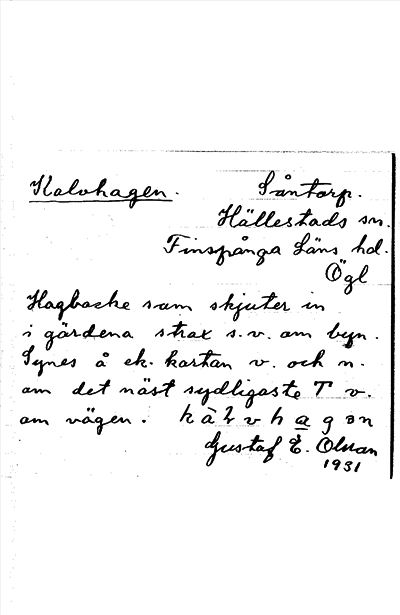 Kalvhagen. Såntorp.
Hällestads sn.
Finspånga Läns hd.
Ögl
Hagbacke som skjuter in
i gärdena strax s.v. om byn.
Synes å ek. kartan v. och n.
om det näst sydligaste T v.
om vägen.
Gustaf E. Olsson
1931